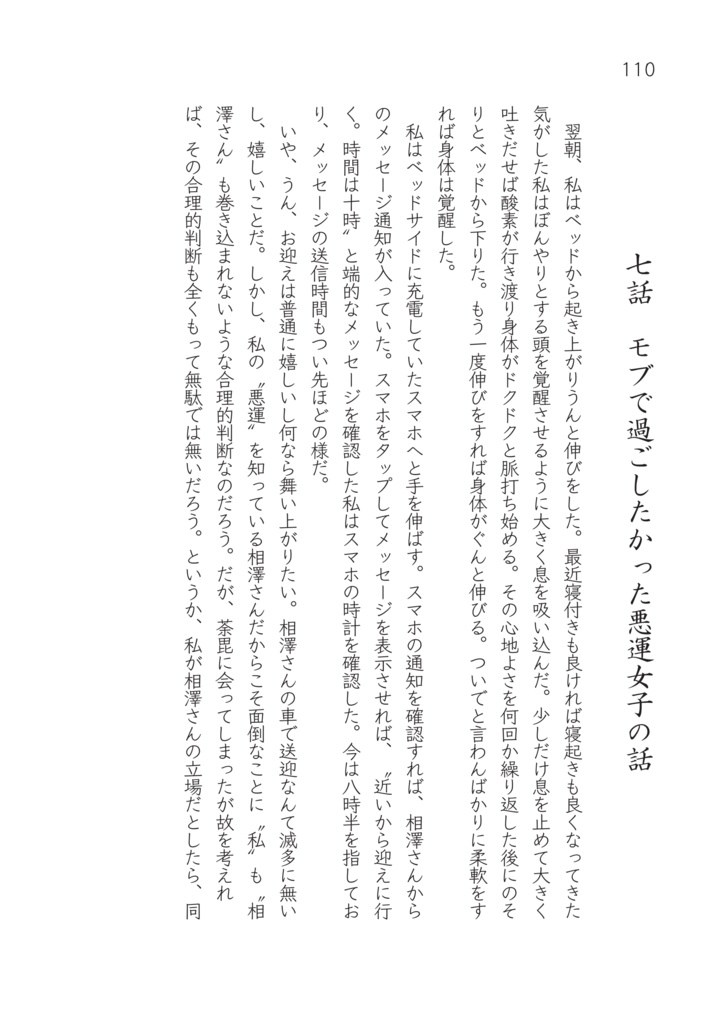 110
七話　モブで過ごしたかった悪運女子の話
翌朝、私はベッドから起き上がりうんと伸びをした。最近寝付きも良ければ寝起きも良くなってきた
気がした私はぼんやりとする頭を覚醒させるように大きく息を吸い込んだ。少しだけ息を止めて大きく
吐きだせば酸素が行き渡り身体がドクドクと脈打ち始める。その心地よさを何回か繰り返した後にのそ
りとベッドから下りた。もう一度伸びをすれば身体がぐんと伸びる。ついでと言わんばかりに柔軟をす
れば身体は覚醒した。
私はベッドサイドに充電していたスマホへと手を伸ばす。スマホの通知を確認すれば、相澤さんから
のメッセージ通知が入っていた。スマホをタップしてメッセージを表示させれば、〝近いから迎えに行
く。時間は十時〟と端的なメッセージを確認した私はスマホの時計を確認した。今は八時半を指してお
り、メッセージの送信時間もつい先ほどの様だ。
いや、うん、お迎えは普通に嬉しいし何なら舞い上がりたい。相澤さんの車で送迎なんて滅多に無い
し、嬉しいことだ。しかし、私の〝悪運〟を知っている相澤さんだからこそ面倒なことに〝私〟も〝相
澤さん〟も巻き込まれないような合理的判断なのだろう。だが、荼毘に会ってしまったが故を考えれ
ば、その合理的判断も全くもって無駄では無いだろう。というか、私が相澤さんの立場だとしたら、同